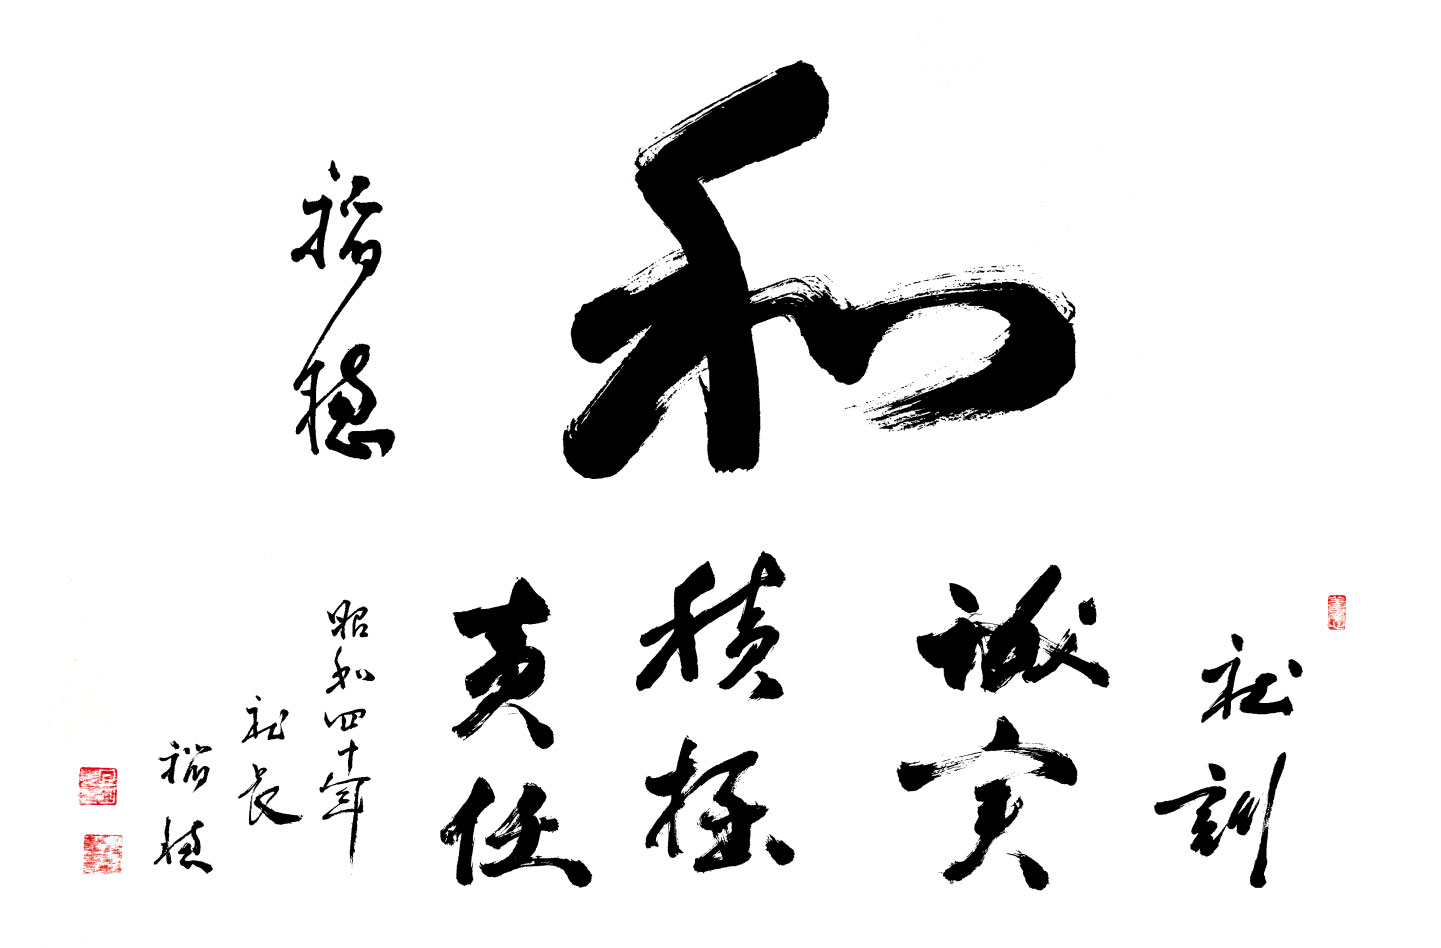 和
稻穂
社訓
誠実
積極
責任
昭和四十年
社長
稻穂